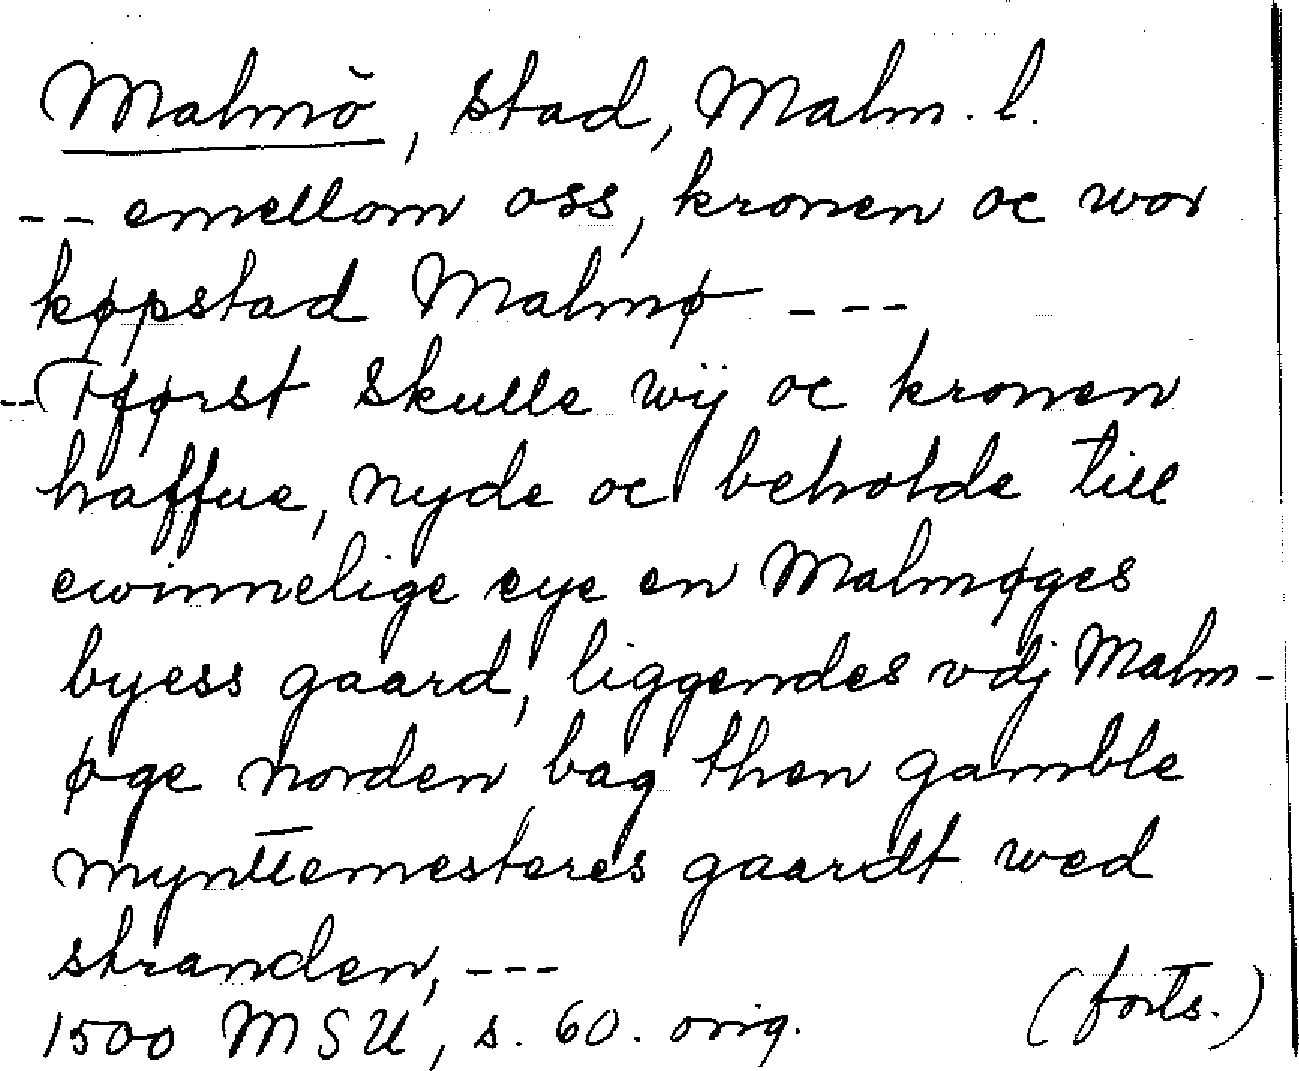 Malmö, stad, Malm. l.
-- emellom oss, kronen oc wor
køpstad Malmø ---
-- Tførst skulle wij oc kronen
haffue, nyde oc beholde till
ewinnelige eye en Malmøges
byess gaard, liggendes vdj Malm-
øge norden bag then gamble
mynttemesteres gaardt wed
stranden, ---
1500 MSU, s. 60. orig. (forts.)